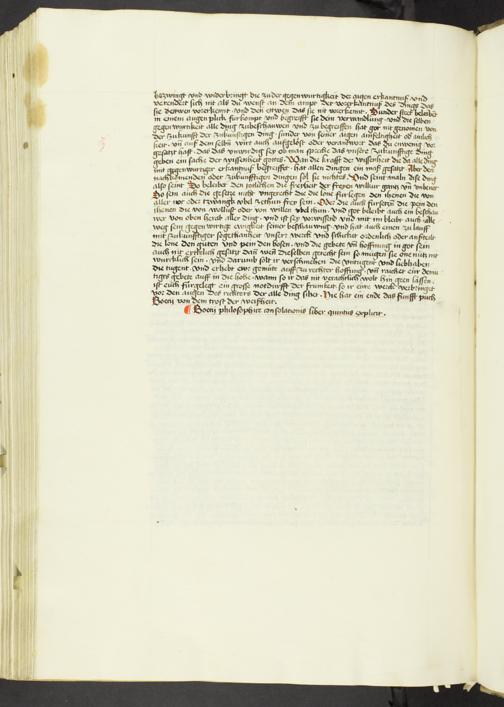 bezwingt vnd widerbringt die zu der gegenwurtigkeit der aigen erkantnuß vnd
verendert sich nit als du wenst an dem ampt der vorerkantnuß des dings das
sie etwen vorerkennt vnd den etwen das sie nit vorerkennt. Sunder stet belaibet
in einem augen plick furkompt vnd begreifft sie dein verwandlung vnd die selben
gegenwurtikeit alle ding zubeschawen vnd zu begreiffen hat got nit genomen von
der zukunfft der zukunfftigen ding sunder von seiner aigen ainfeltigkeit
gesatzt hast das das vnwirdig sey ob man spreche das vnsere zukunfftige ding
geben ein sache der wissenheit gottes. Wan die krafft der wissenheit die da alle ding
mit gegenwurtiger erkantnuß begreifft hat allen dingen ein maß gesatzt Aber den
nachkomenden oder zukunfftigen dingen sol sie nichtes. Vnd seint maln dise ding
also seint So beleibet den totlichen die freiheit der freyen willkur gantz
So sein auch die gesetze nicht vngerecht die die lone furlegen den ihenen die von
aller not oder bezwangk wol zethun frey sein. Oder die auch fursetzen die pein den
ihenen die von wollust oder von willen vbel thun. Vnd got beleibt auch ein beschaw
wer von oben herab aller ding vnd ist ser vorwissend vnd mit im bleibt auch alle
weg sein gegenwirtige ewigkeit seiner beschawung vnd hat auch einen zu lauff
mit zukunfftiger sogethanheit vnser werck vnd schicket ordenlich oder austeilt
die lone den guten vnd pein den bosen. vnd die gebete vnd hoffnung in got sein
auch nit eytelich gesatzt dann weil dieselben gerecht sein so mugen sie one nutz nit
wurcklich sein. Vnd darumb solt ir verschmehen die vntugent vnd liebhaben
die tugent. Vnd erhebt ewr gemute auff zu rechter hoffnung vnd raichet ein demu
tiges gebete auff in die hohe. wann so ir das nit verachtlich wolt hin geen lassen
ist euch furgelegt ein grosse notdurfft der frumkeit so ir ewre werck verbringet
vor den augen des richters der alle ding sihet. Hie hat ein ende das funfft puch
Boecij von dem trost der weißheit.
Boecij philosophice consolationis liber quintus explicit.